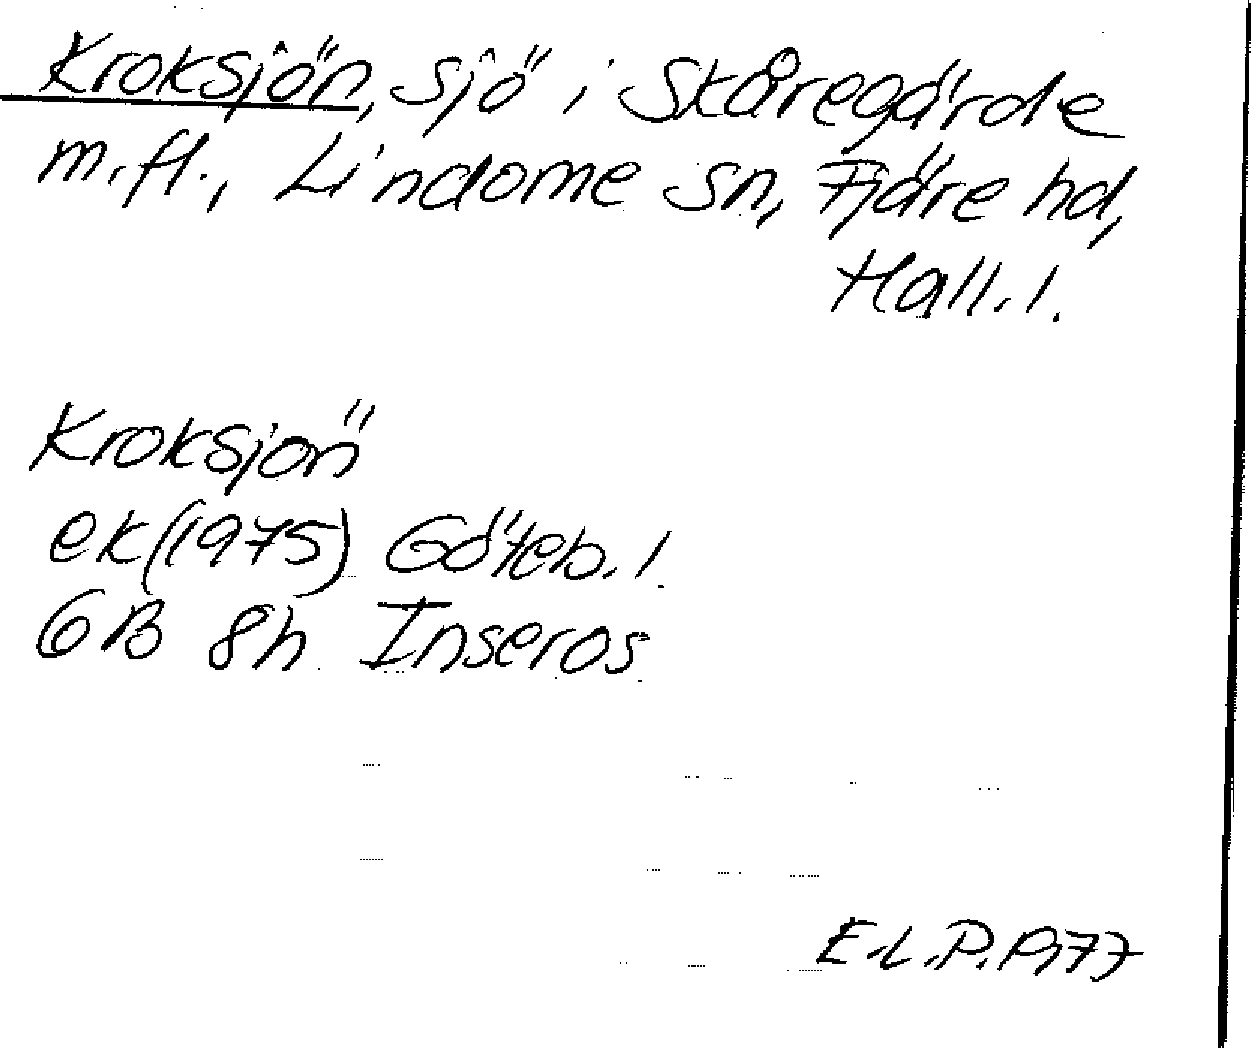 Kroksjön, sjö i Skåregärde
m.fl., Lindome sn, Fjäre hd,
Hall. l.
Kroksjön
ek(1975) Göteb. l.
6B 8h Inseros
E-L.P. 1977